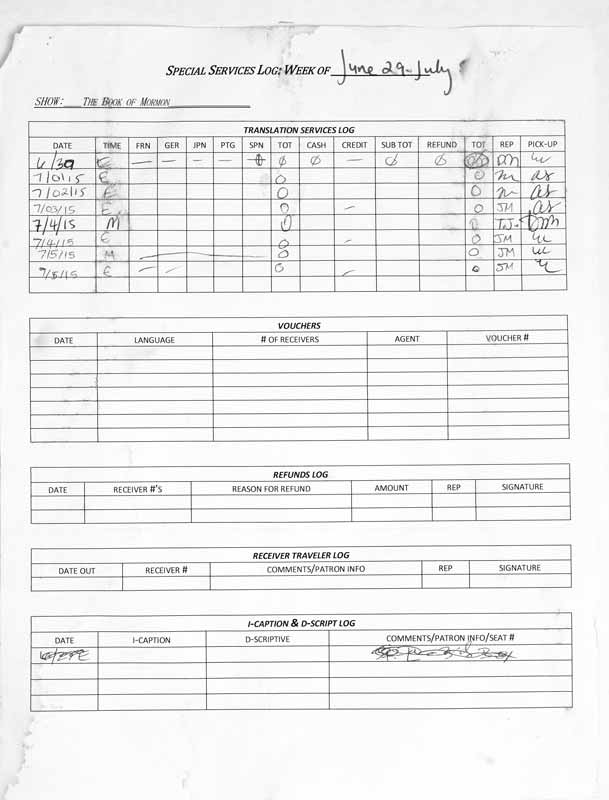 SPECIAL SERVICES LOG: WEEK OF June 29-July
SHOW: THE BOOK OF MORMON
TRANSLATION SERVICES LOG
DATE TIME FRN GER JPN PTG SPN TOT CASH CREDIT SUB TOT REFUND TOT REP PICK-UP
6/30 E — — — — ϕ ϕ ϕ — ϕ ϕ
7/01/15 E 0 0 as
7/02/15 E 0 0 as
7/03/15 E 0 — 0 JM as
7/4/15 M 0 0 TJ-
7/4/15 E 0 — 0 JM
7/5/15 M 0 0 JM
7/5/15 E — — 0 — 0 JM
VOUCHERS
DATE LANGUAGE # OF RECEIVERS AGENT VOUCHER #
REFUNDS LOG
DATE RECEIVER #'S REASON FOR REFUND AMOUNT REP SIGNATURE
RECEIVER TRAVELER LOG
DATE OUT RECEIVER # COMMENTS/PATRON INFO REP SIGNATURE
I-CAPTION & D-SCRIPT LOG
DATE I-CAPTION D-SCRIPTIVE COMMENTS/PATRON INFO/SEAT #